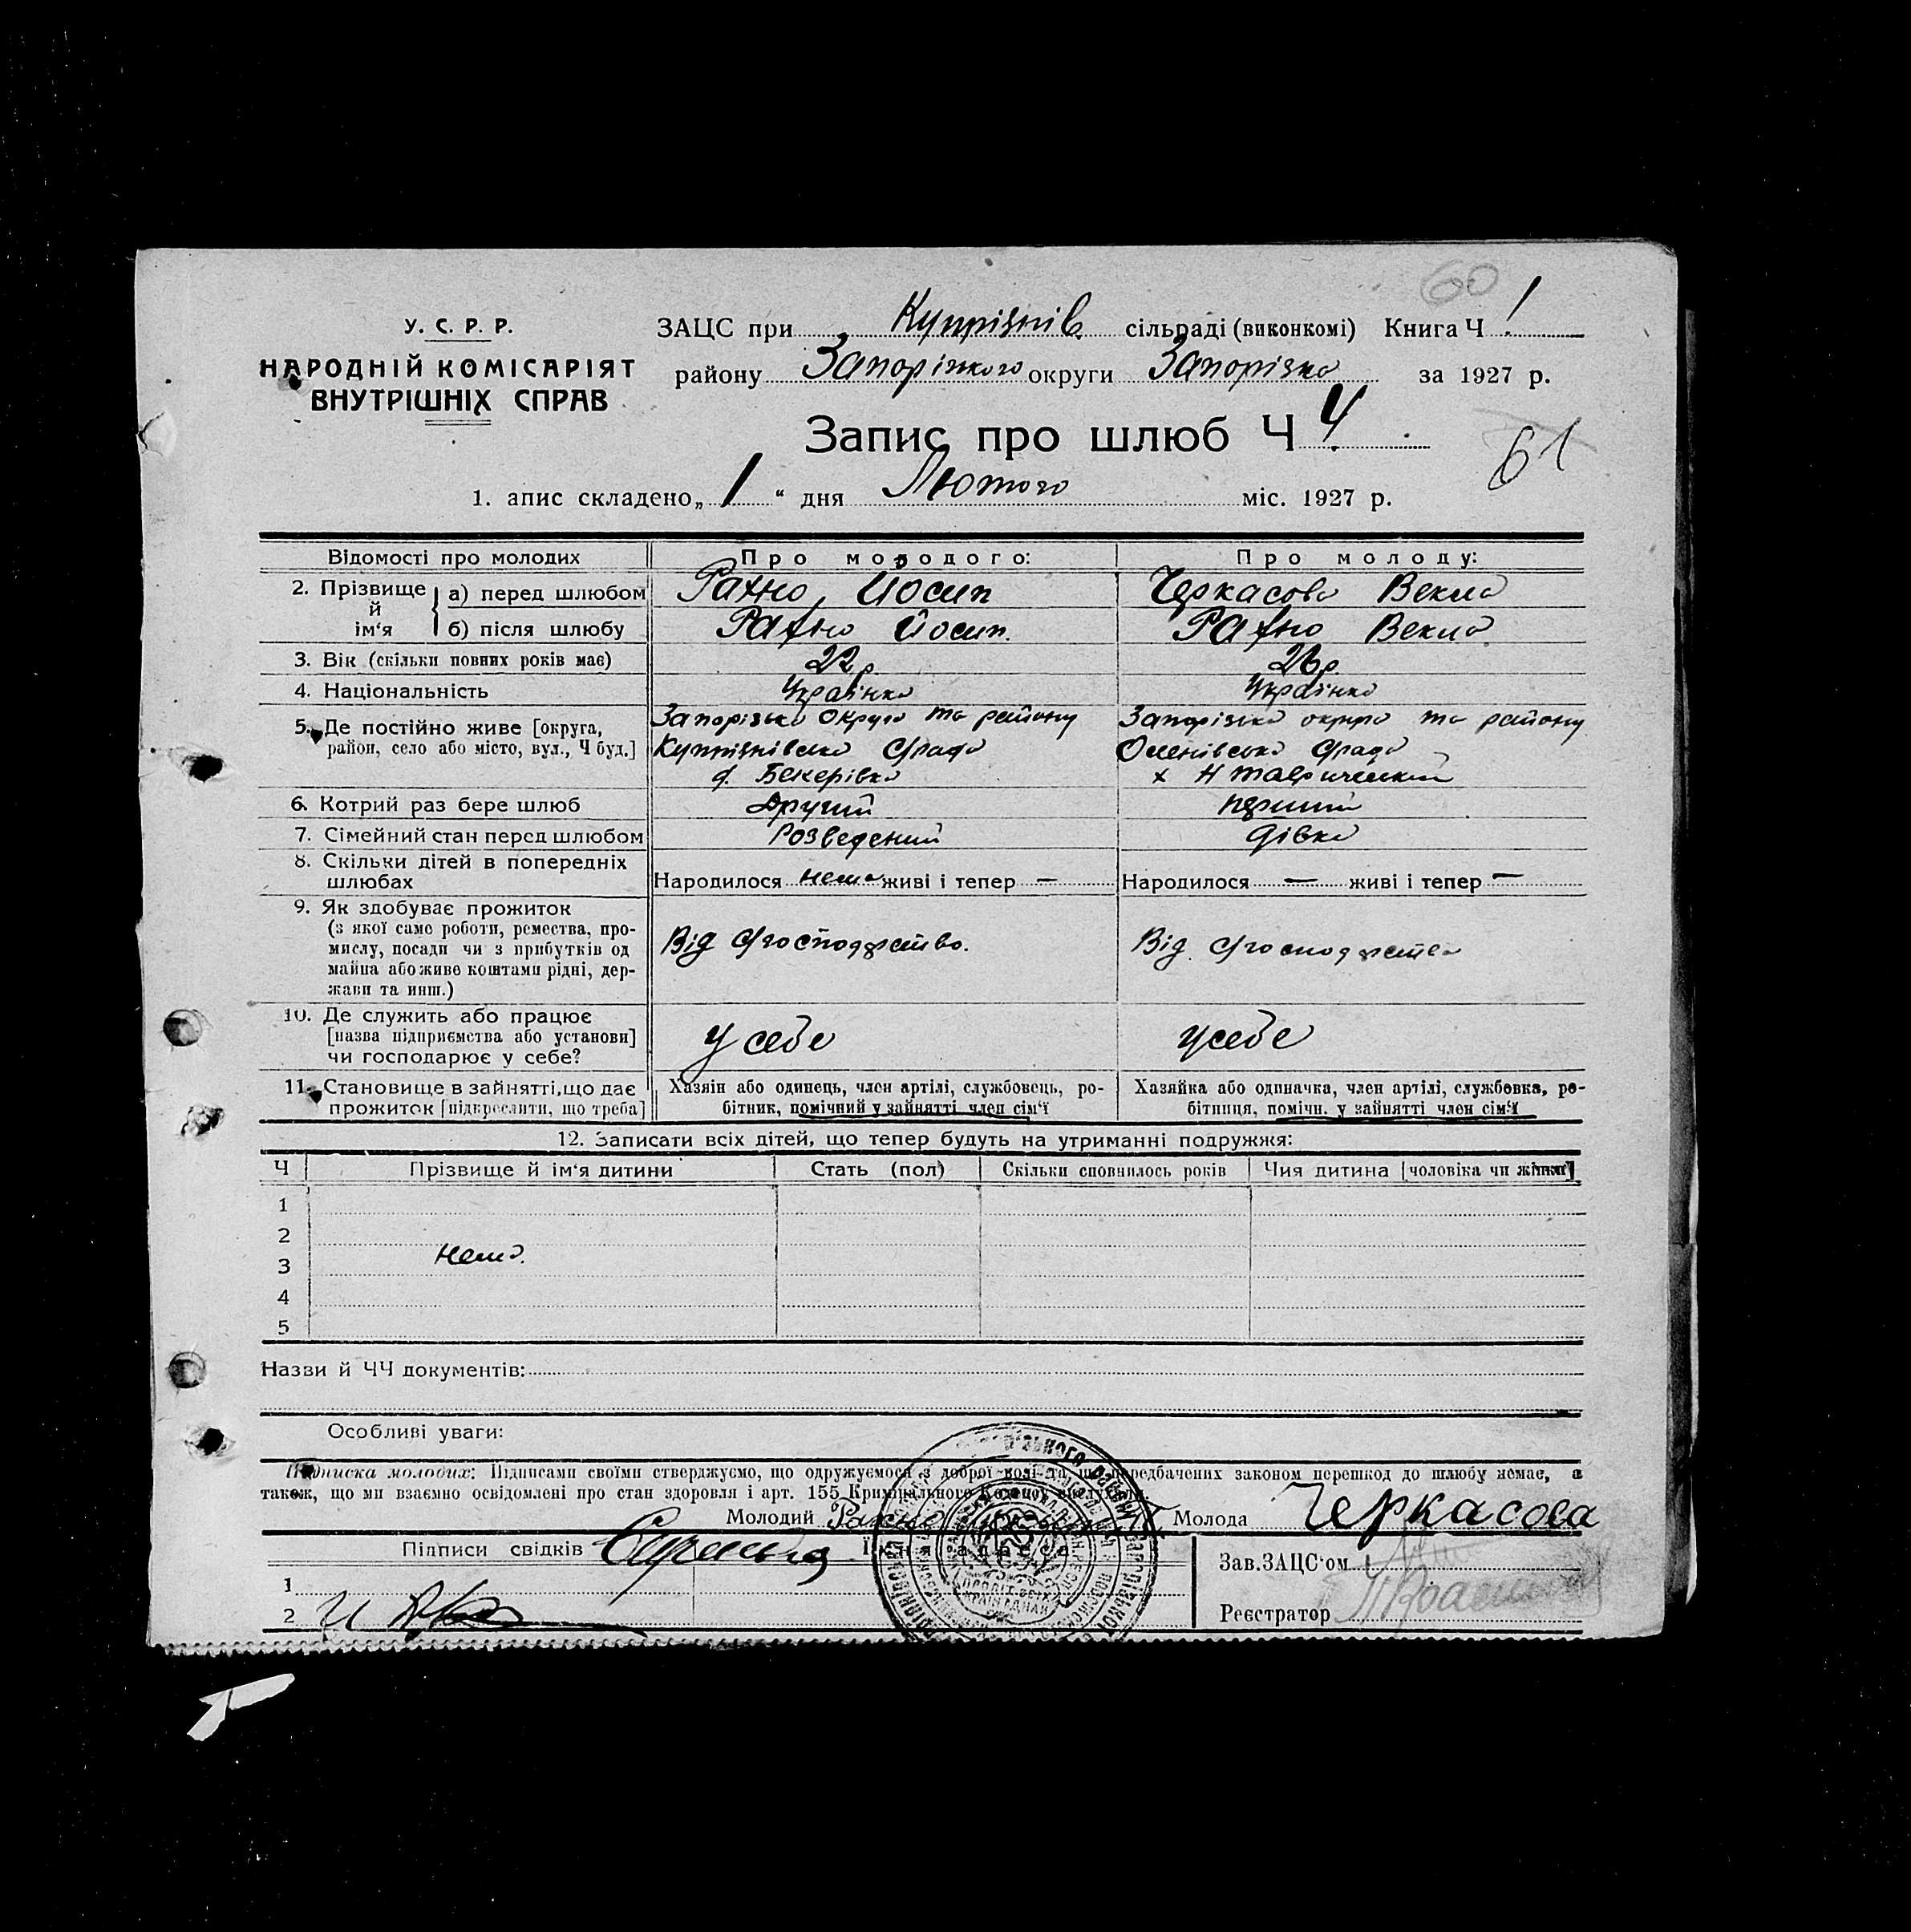 60
У. С. Р. Р.
НАРОДНІЙ КОМІСАРІЯТ
ВНУТРІШНІХ СПРАВ
ЗАЦС при Купріянів. сільраді (виконкомі) Книга Ч 1
району Запорізького округи Запорізька за 1927 р.
Запис про шлюб Ч 4
61
1. апис складено „1“ дня Лютого міс. 1927 р.
Відомості про молодих Про молодого: Про молоду:
2. Прізвище й ім‘я а) перед шлюбом Рахно Йосип Черкасова Векла
б) після шлюбу Рахно Йосип. Рахно Векла
3. Вік (скільки повних років має) 22 р
4. Національність Українка Українка
5. Де постійно живе [округа, Запорізька округа та району Запорізька округа та району
район, село або місто, вул., Ч буд.] Купріянівська с/рада с/рада
Бекерівка х
6. Котрий раз бере шлюб Другий перший
7. Сімейний стан перед шлюбом Розведений дівка
8. Скільки дітей в попередніх
шлюбах Народилося нема живі і тепер — Народилося — живі і тепер —
9. Як здобуває прожиток
(з якої само роботи, ремества, про-
мислу, посади чи з прибутків од Від с/господарства. Від с/господарства
майна або живе коштами рідні, дер-
жави та инш.)
10. Де служить або працює
[назва підприємства або установи] у себе у себе
чи господарює у себе?
11. Становище в зайнятті, що дає Хазяїн або одинець, член артілі, службовець, ро- Хазяйка або одиначка, член артілі, службовка, ро-
прожиток [підкреслити, що треба] бітник, помічний у зайнятті член сім‘ї бітниця, помічн. у зайнятті член сім‘ї
12. Записати всіх дітей, що тепер будуть на утриманні подружжя:
Ч Прізвище й ім‘я дитини Стать (пол) Скільки сповнилось років Чия дитина [чоловіка чи жінки]
1
2
нема.
3
4
5
Назви й ЧЧ документів:
Особливі уваги:
Підписка молодих: Підписами своїми стверджуємо, що одружуємося з доброї волі та що передбачених законом перешкод до шлюбу немає, а
також, що ми взаємно освідомлені про стан здоровля і арт. 155 Кримінального Кодексу вислухали.
Молодий Рахно Молода Черкасова
Підписи свідків Їхня адреса Зав. ЗАЦС‘ом
1
2 Реєстратор